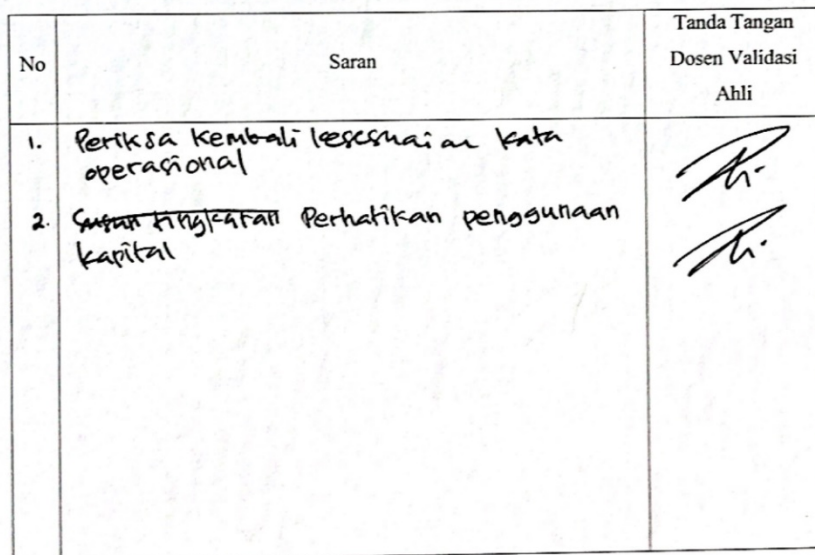 No
Saran
Tanda Tangan
Dosen Validasi
Ahli
1. Periksa Kembali kesesuaian kata
operasional
2. Susun tingkatan Perhatikan penggunaan
kapital